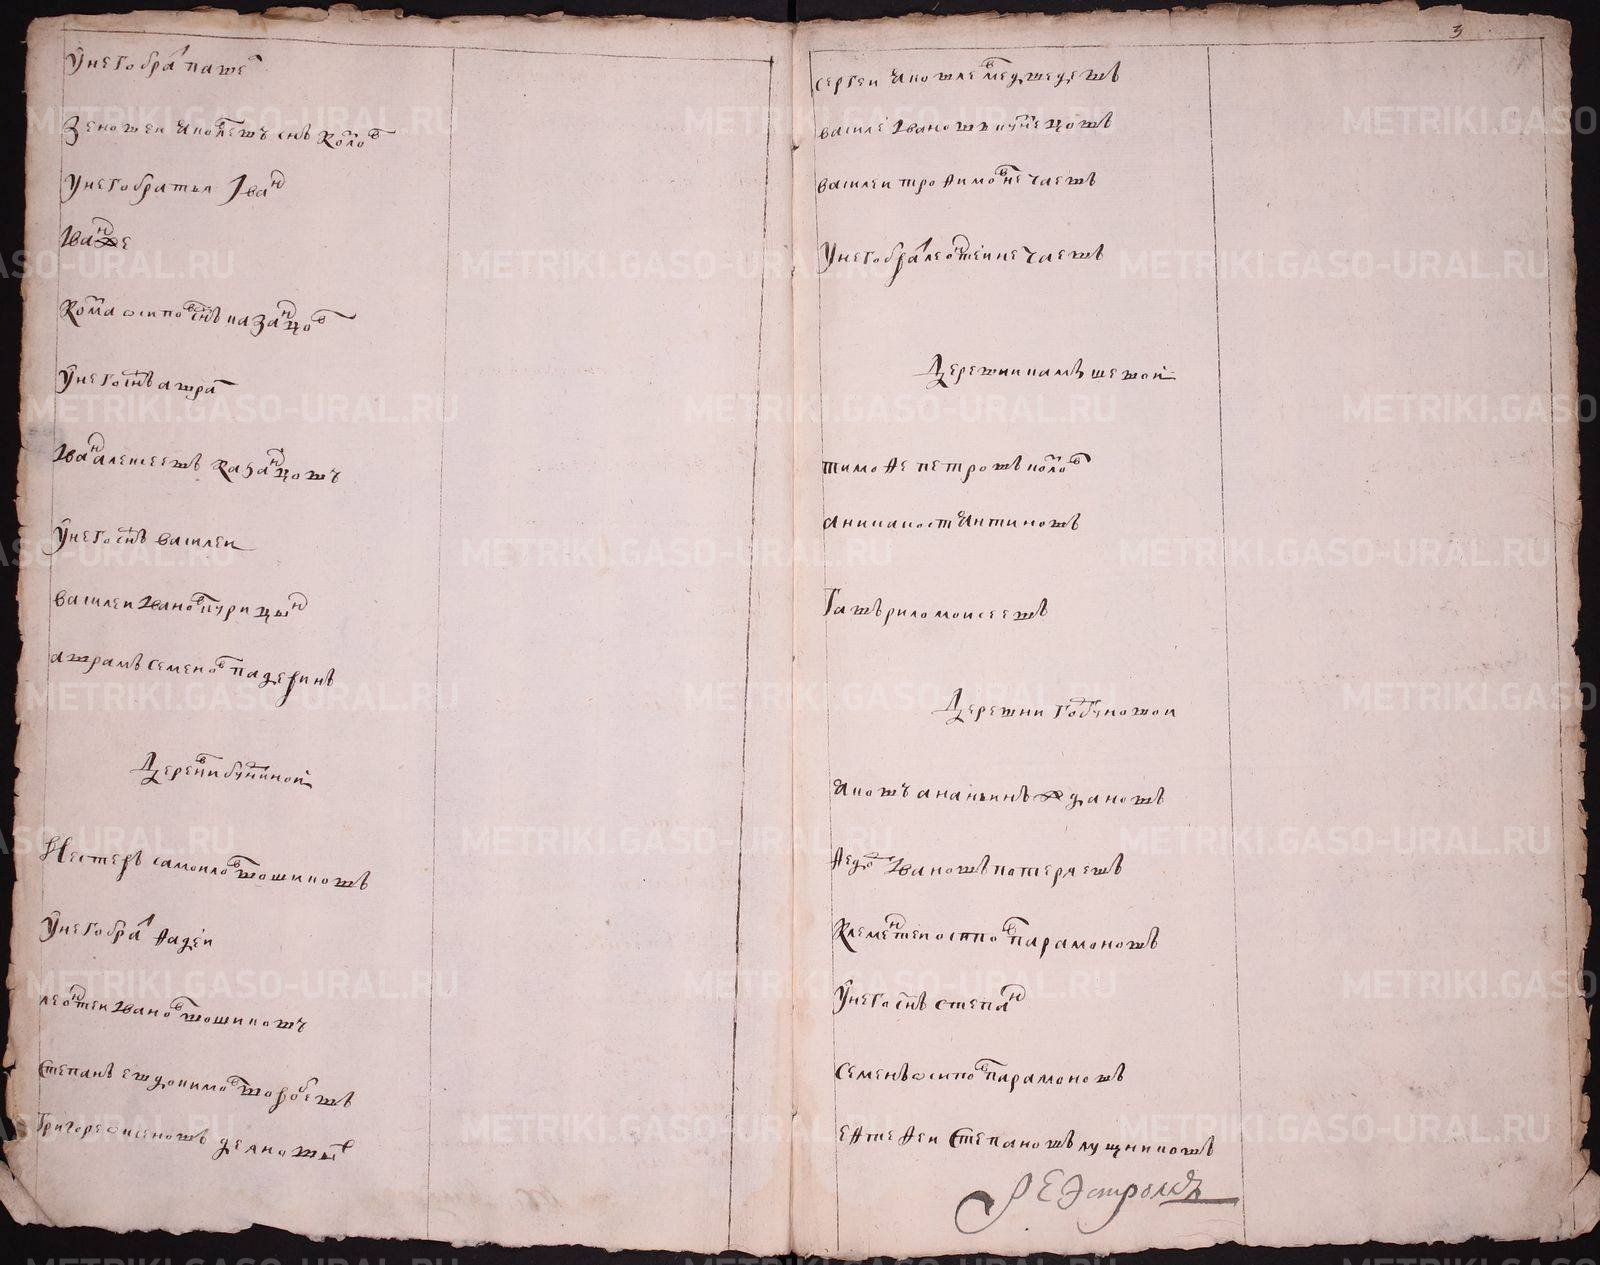 У него бра паве
Зеновеи Яковлевъ снъ Коло
У него братья Iван
Iван же
Рома Осиповъ снъ Казанцов
У него снъ аврам
Iван алексеевъ Казанцовъ
У него снъ василеи
василеи Iванов курицын
аврамъ семенов падеринъ
Деревни буниной
Нестеръ самоилов вошиковъ
У него бра Фадеи
леонтеи Iванов вошиковъ
Степанъ евдокимов воробевъ
Григореи
3
сергеи Яковлев медведевъ
василеи Iвановъ кузнецовъ
василеи трофимов нечаевъ
У него бра леонтеи нечаевъ
Деревни камышевой
тимофе петровъ коло
Антиповъ
Гаврило моисеевъ
Деревни Горбуновой
Яковъ ананьинъ ждановъ
Федо Iвановъ потеряевъ
Клементеи осипов парамоновъ
У него снъ степан
Семенъ осипов парамоновъ
Степановъ лушниковъ
METRIKI.GASO-URAL.RU